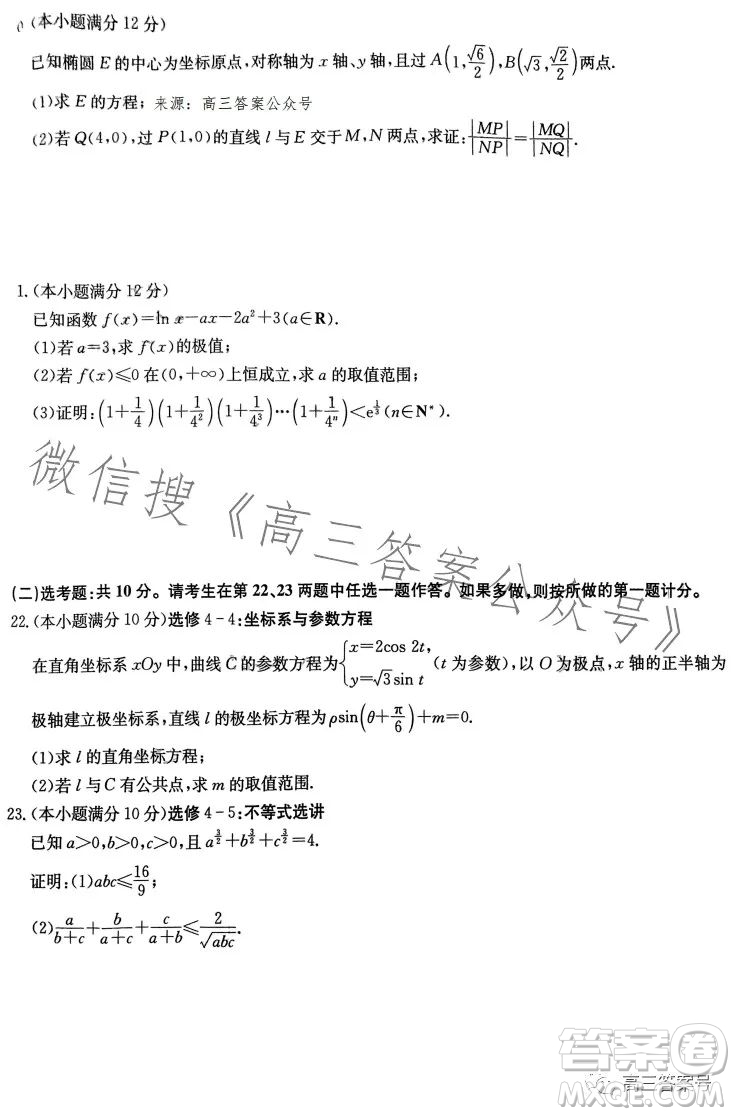 0 (本小题满分12分)
已知椭圆 E 的中心为坐标原点，对称轴为 x 轴、y 轴，且过 A(1, √6/2), B(√3, √2/2) 两点.
(1)求 E 的方程；来源：高三答案公众号
(2)若 Q(4,0)，过 P(1,0)的直线 l 与 E 交于 M,N 两点，求证：|MP|/|NP|=|MQ|/|NQ|.
1.(本小题满分12分)
已知函数 f(x)=ln x-ax-2a²+3(a∈R).
(1)若 a=3,求 f(x)的极值；
(2)若 f(x)≤0 在(0,+∞)上恒成立，求 a 的取值范围；
(3)证明：(1+1/4)(1+1/4²)(1+1/4³)…(1+1/4ⁿ)<e^(1/3)(n∈N*).
微信搜《高三答案公众号》
(二)选考题：共10分。请考生在第22、23两题中任选一题作答。如果多做，则按所做的第一题计分。
22.(本小题满分10分)选修4-4：坐标系与参数方程
在直角坐标系 xOy 中，曲线 C 的参数方程为{x=2cos 2t, y=√3sin t (t 为参数)，以 O 为极点，x 轴的正半轴为
极轴建立极坐标系，直线 l 的极坐标方程为 ρsin(θ+π/6)+m=0.
(1)求 l 的直角坐标方程；
(2)若 l 与 C 有公共点，求 m 的取值范围.
23.(本小题满分10分)选修4-5：不等式选讲
已知 a>0,b>0,c>0,且 a^(3/2)+b^(3/2)+c^(3/2)=4.
证明：(1)abc≤16/9;
(2)a/(b+c)+b/(a+c)+c/(a+b)≤2/√abc.
答案卷
高三答案号